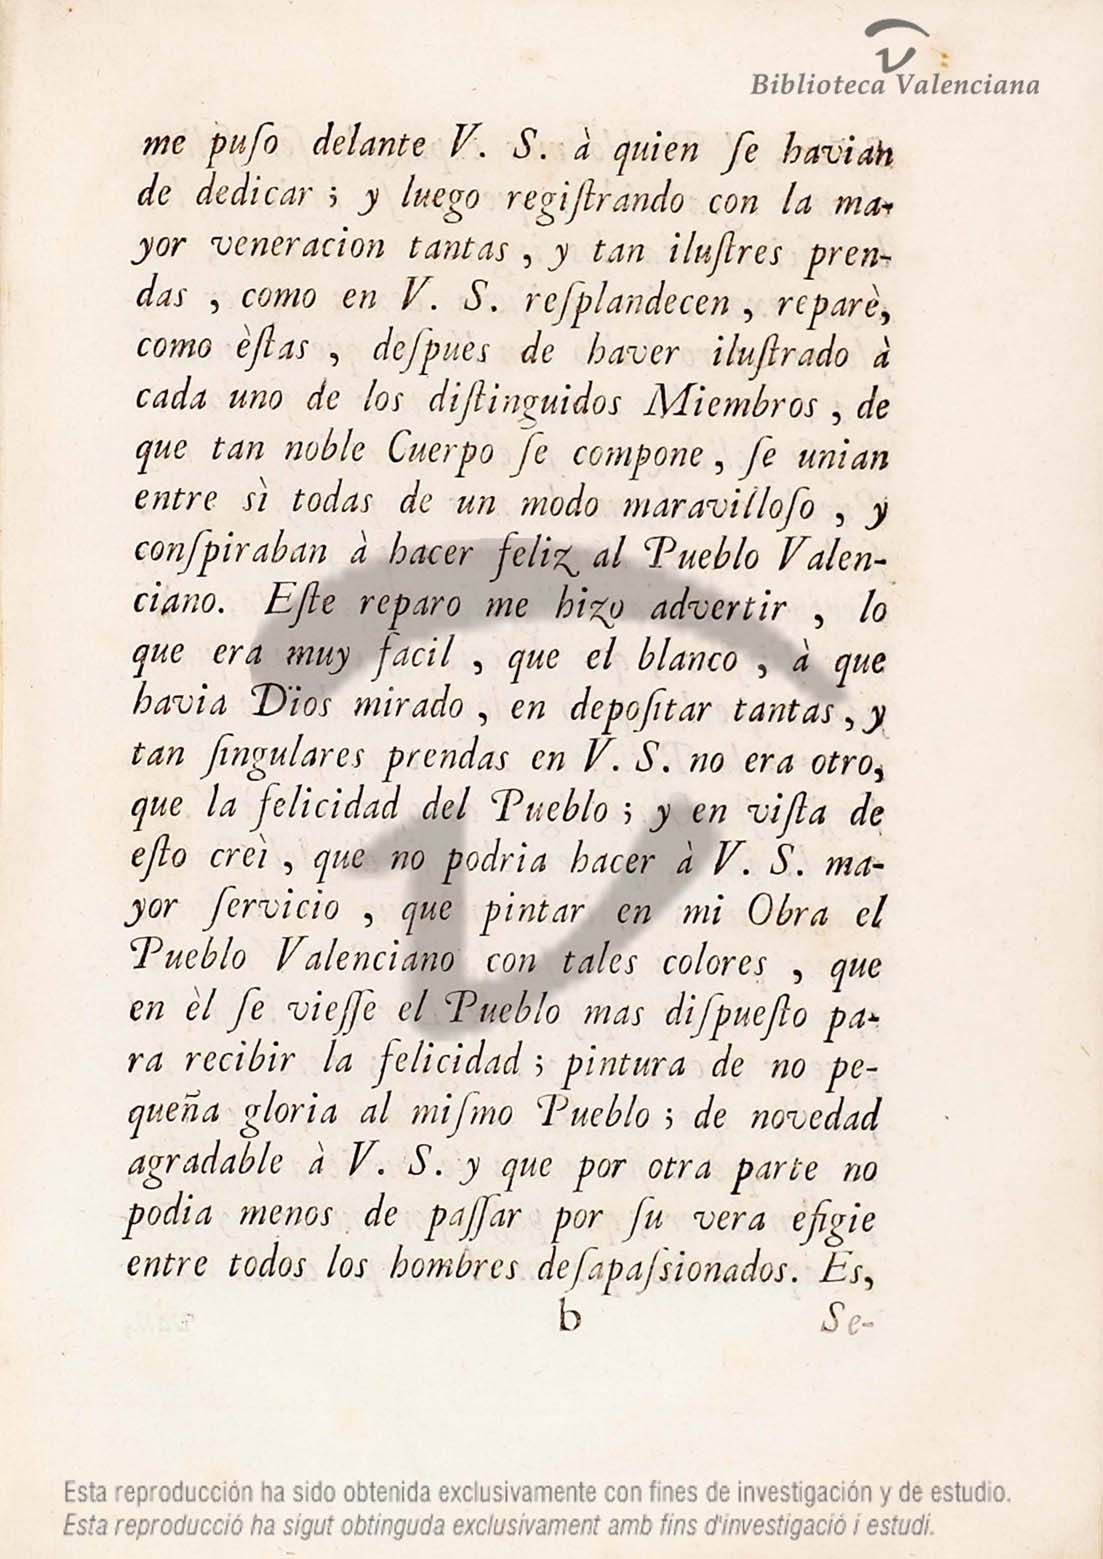 Biblioteca Valenciana
me puſo delante V. S. à quien ſe havian
de dedicar ; y luego regiſtrando con la ma-
yor veneracion tantas , y tan iluſtres pren-
das , como en V. S. reſplandecen , reparè,
como èſtas , deſpues de haver iluſtrado à
cada uno de los diſtinguidos Miembros , de
que tan noble Cuerpo ſe compone , ſe unian
entre sì todas de un modo maravilloſo , y
conſpiraban à hacer feliz al Pueblo Valen-
ciano. Eſte reparo me hizo advertir , lo
que era muy facil , que el blanco , à que
havia Dios mirado , en depoſitar tantas , y
tan ſingulares prendas en V. S. no era otro,
que la felicidad del Pueblo ; y en viſta de
eſto creì , que no podria hacer à V. S. ma-
yor ſervicio , que pintar en mi Obra el
Pueblo Valenciano con tales colores , que
en èl ſe vieſſe el Pueblo mas diſpueſto pa-
ra recibir la felicidad ; pintura de no pe-
queña gloria al miſmo Pueblo ; de novedad
agradable à V. S. y que por otra parte no
podia menos de paſſar por ſu vera efigie
entre todos los hombres deſapaſsionados. Es,
b Se-
Esta reproducción ha sido obtenida exclusivamente con fines de investigación y de estudio.
Esta reproducció ha sigut obtinguda exclusivament amb fins d'investigació i estudi.